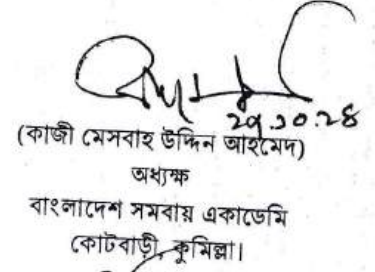 ২৭.১০.২৪
(কাজী মেসবাহ উদ্দিন আহমেদ)
অধ্যক্ষ
বাংলাদেশ সমবায় একাডেমি
কোটবাড়ী, কুমিল্লা।